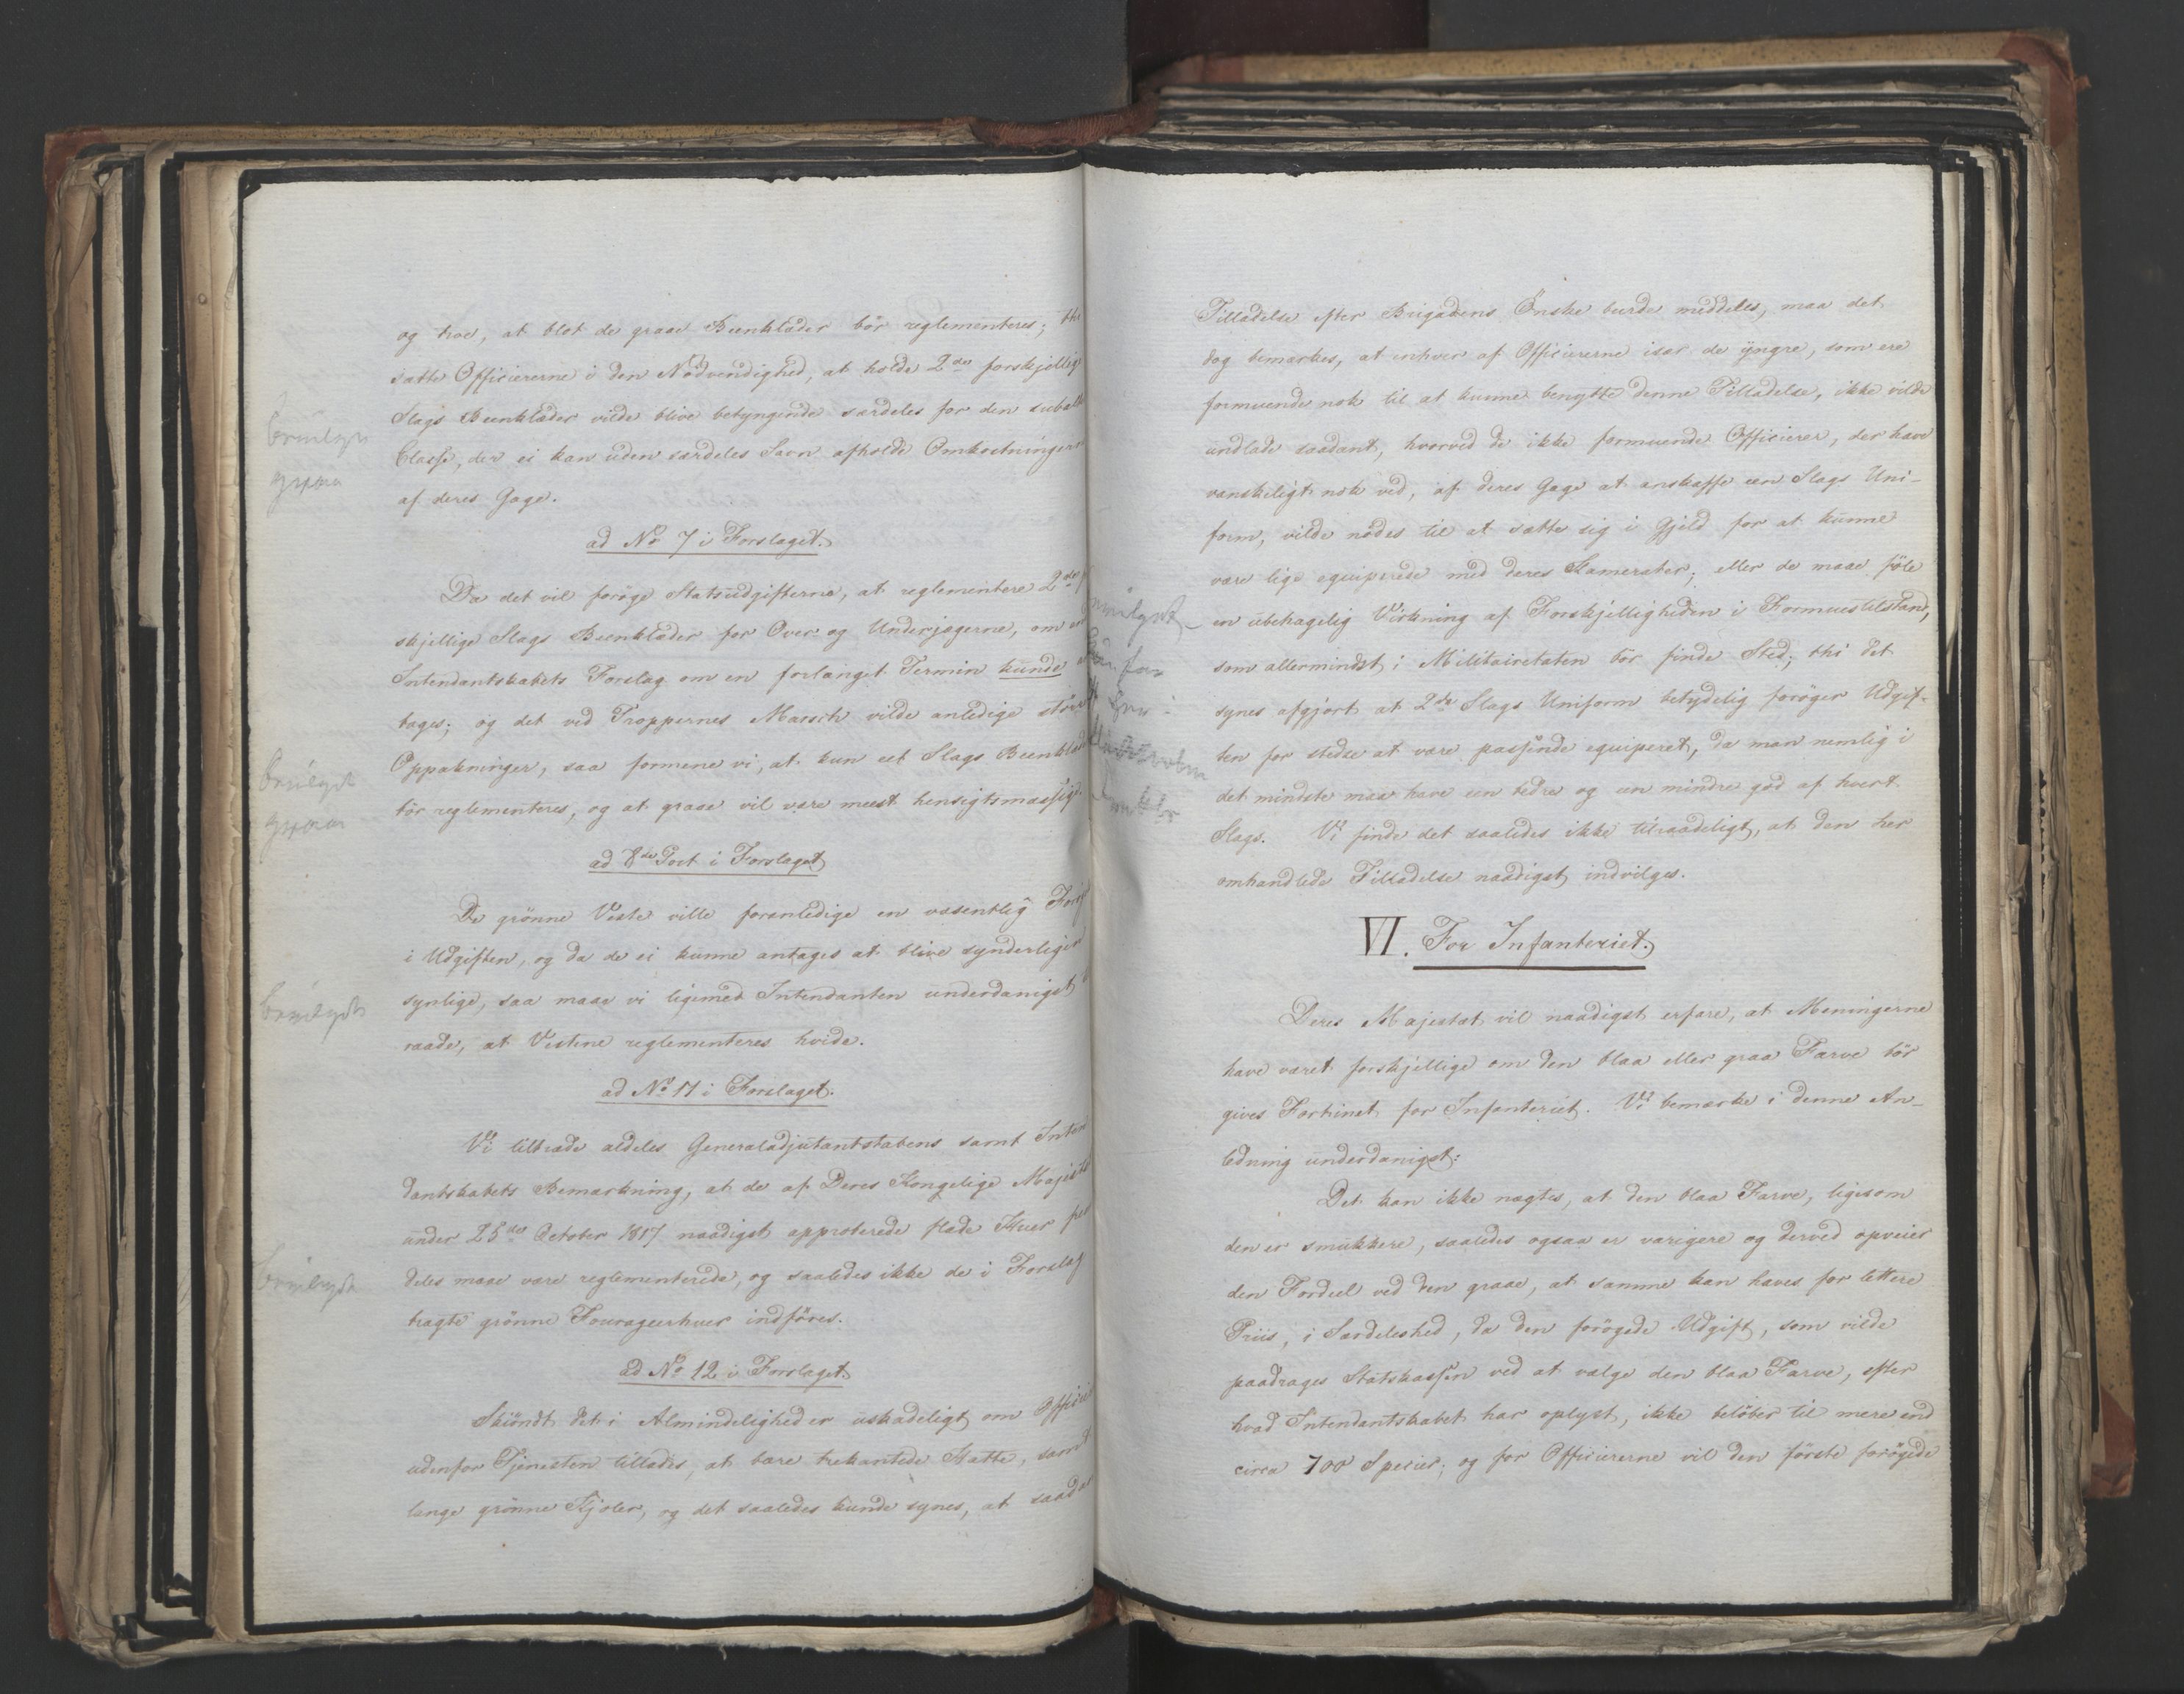 og troe, at blot de graae Beenklæder bör reglementeres; thi
sætte Officiererne i den Nödvendighed, at holde 2de forskjellig
Slags Beenklæder vilde blive betyngende særdeles for den subalt
Classe, der ei kan uden særdeles Savn afholde Omkostningerne
af deres Gage.
ad No 7 i Forslaget.
Da det vil foröge Statsudgifterne, at reglementere 2de f
skjellige Slags Beenklæder for Over og Underjægerne, om end
Intendantskabets Forslag om en forlænget Termin kunde
tages; og det ved Troppernes Marsch vilde anledige större
Oppakninger, saa formene vi, at kun eet Slags Beenklæd
bör reglementeres, og at graae vil være meest hensigtsmæssig.
ad 8de Post i Forslaget
De grönne Veste ville foranledige en væsentlig Forög
i Udgiften, og da de ei kunne antages at blive synderligen
synlige, saa maae vi ligemed Intendanten underdanigst
raade, at Vestene reglementeres hvide.
ad No 11 i Forslaget.
Vi tiltræde aldeles Generaladjutantstabens samt Inten
dantskabets Bemærkning, at de af Deres Kongelige Majestæt
under 25de October 1817 naadigst approberede flade Huer
deles maae være reglementerede, og saaledes ikke de i Forslag
bragte grönne Fouragerhuer indföres.
ad No 12 i Forslaget.
Skiöndt det i Almindelighed er uskadeligt om Officier
udenfor Tjenesten tillades, at bære trekantede Hatte, samt
lange grönne Kjoler, og det saaledes kunde synes, at saadan
Tilladelse efter Brigadens Önske burde meddeles, maa det
dog bemærkes, at enhver af Officiererne især de yngre, som ere
formuende nok til at kunne benytte denne Tilladelse, ikke vilde
undlade saadant, hvorved de ikke formuende Officierer, der have
vanskeligt nok ved, af deres Gage at anskaffe een Slags Uni-
form, vilde nödes til at sætte sig i Gjeld for at kunne
være lige equiperede med deres Kamerater; eller de maae föle
en ubehagelig Virkning af Forskjelligheden i Formuestilstand,
som allermindst i Militairetaten bör finde Sted; thi det
synes afgjort at 2de Slags Uniform betydelig foröger Udgif-
ten for stedse at være passende equiperet, da man nemlig i
det mindste maa have een bedre og een mindre god af hvert
Slags. Vi finde det saaledes ikke tilraadeligt, at den her
omhandlede Tilladelse naadigst indvilges.
VI. For Infanteriet.
Deres Majestæt vil naadigst erfare, at Meningerne
have været forskjellige om den blaa eller graa Farve bör
gives Fortrinet for Infanteriet. Vi bemærke i denne An-
ledning underdanigst:
Det kan ikke nægtes, at den blaa Farve, ligesom
den er smukkere, saaledes ogsaa er varigere og derved opveier
den Fordeel ved den graae, at samme kan haves for lettere
Priis, i Særdeleshed, da den forögede Udgift, som vilde
paadrages Statskassen ved at vælge den blaa Farve, efter
hvad Intendantskabet har oplyst, ikke belöber til mere end
circa 700 Specier; og for Officiererne vil den förste forögede